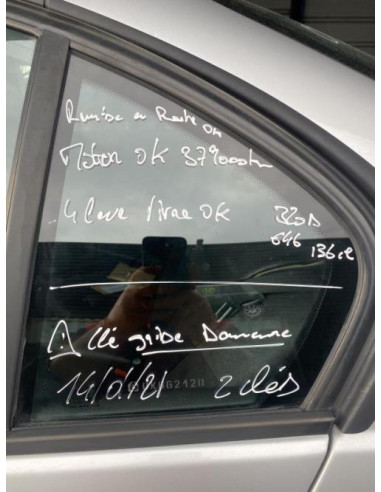 Remise en Route OK
Moteur OK 379000km
4 leve vitre OK 320D
E46
136cv
⚠ Clé grise Demarre
14/01/21 2 clés